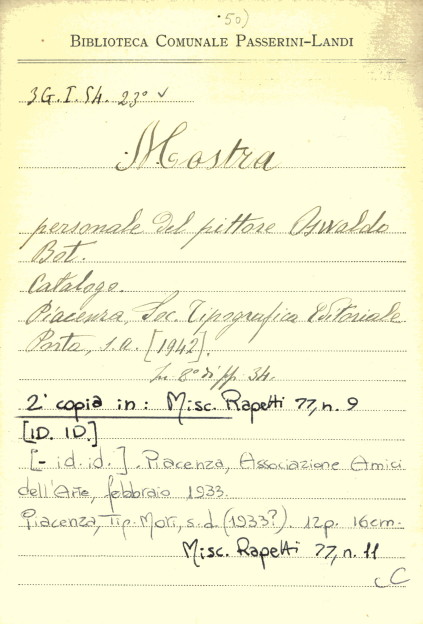 50)
BIBLIOTECA COMUNALE PASSERINI-LANDI
3G.I.54. 23° v
Mostra
personale del pittore Oswaldo
Bot.
Catalogo.
Piacenza, Soc. Tipografica Editoriale
Porta, s.a. [1942].
In 8° di pp. 34.
2ª copia in: Misc. Rapetti 77, n. 9
[ID. ID.]
[- id. id.]. Piacenza, Associazione Amici
dell'Arte, febbraio 1933.
Piacenza, Tip. Mori, s.d. (1933?). 12p. 16cm.
Misc. Rapetti 77, n. 11
C